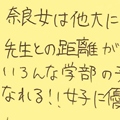 奈良女は他大に
先生との距離が
いろんな学部の子
なれる!!女子に優